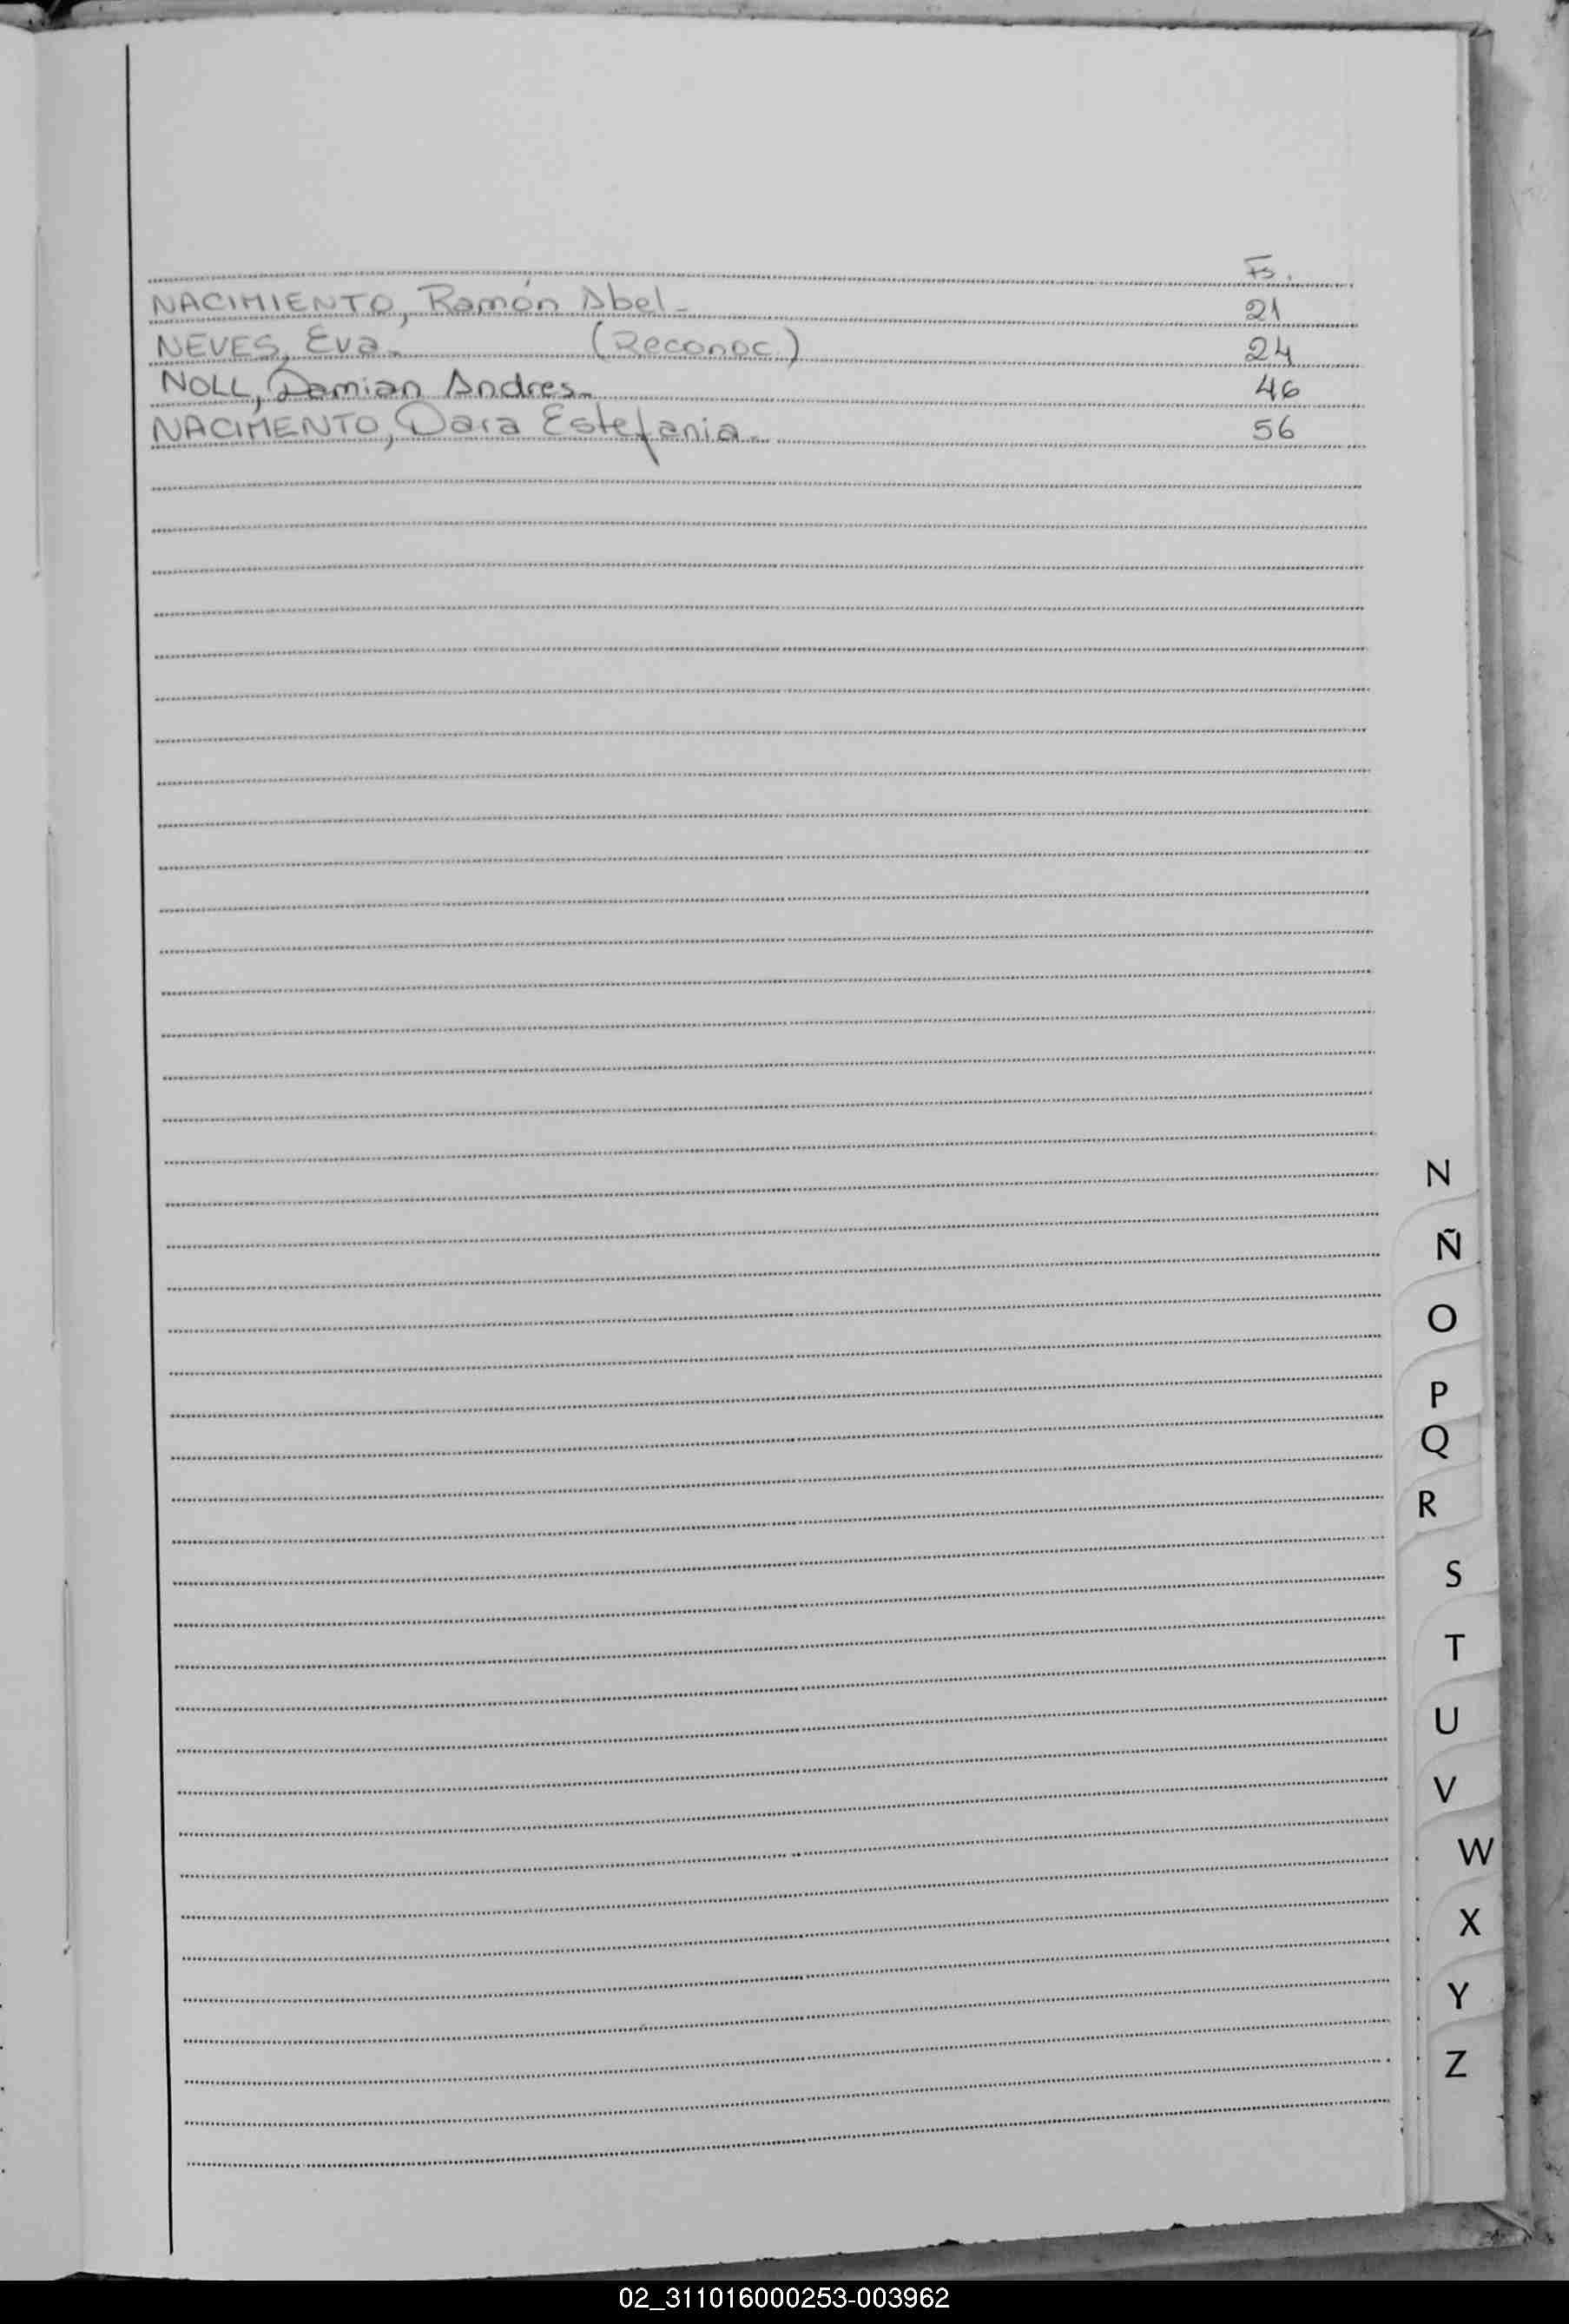 Fs.
NACIMIENTO, Ramón Abel - 21
NEVES, Eva - (Reconoc) 24
NOLL, Damian Andres - 46
NACIMENTO, Dara Estefania - 56
N
Ñ
O
P
Q
R
S
T
U
V
W
X
Y
Z
02_311016000253-003962